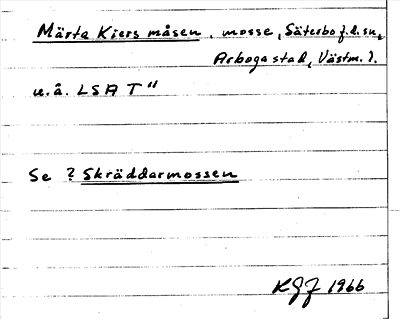 Märta Kiers måsen, mosse, Säterbo f.d. sn,
Arboga stad, Västm. l.
u.å. LSA T"
Se ? Skräddarmossen
KGF 1966